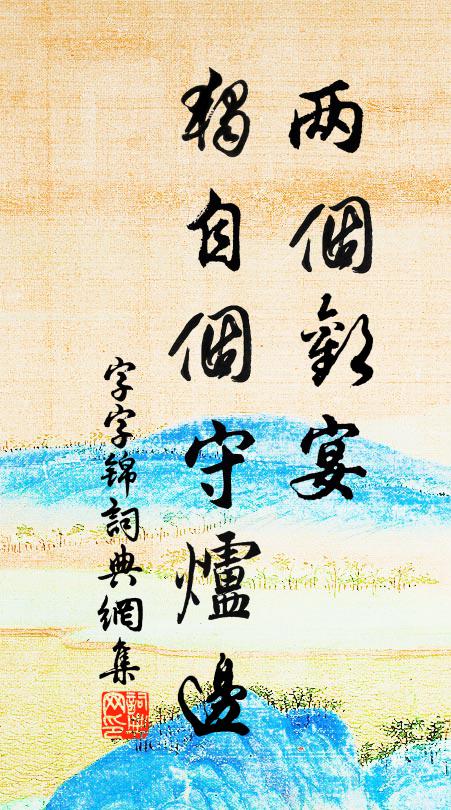 两個歡宴
獨自個守爐邊
字字錦詞典網集